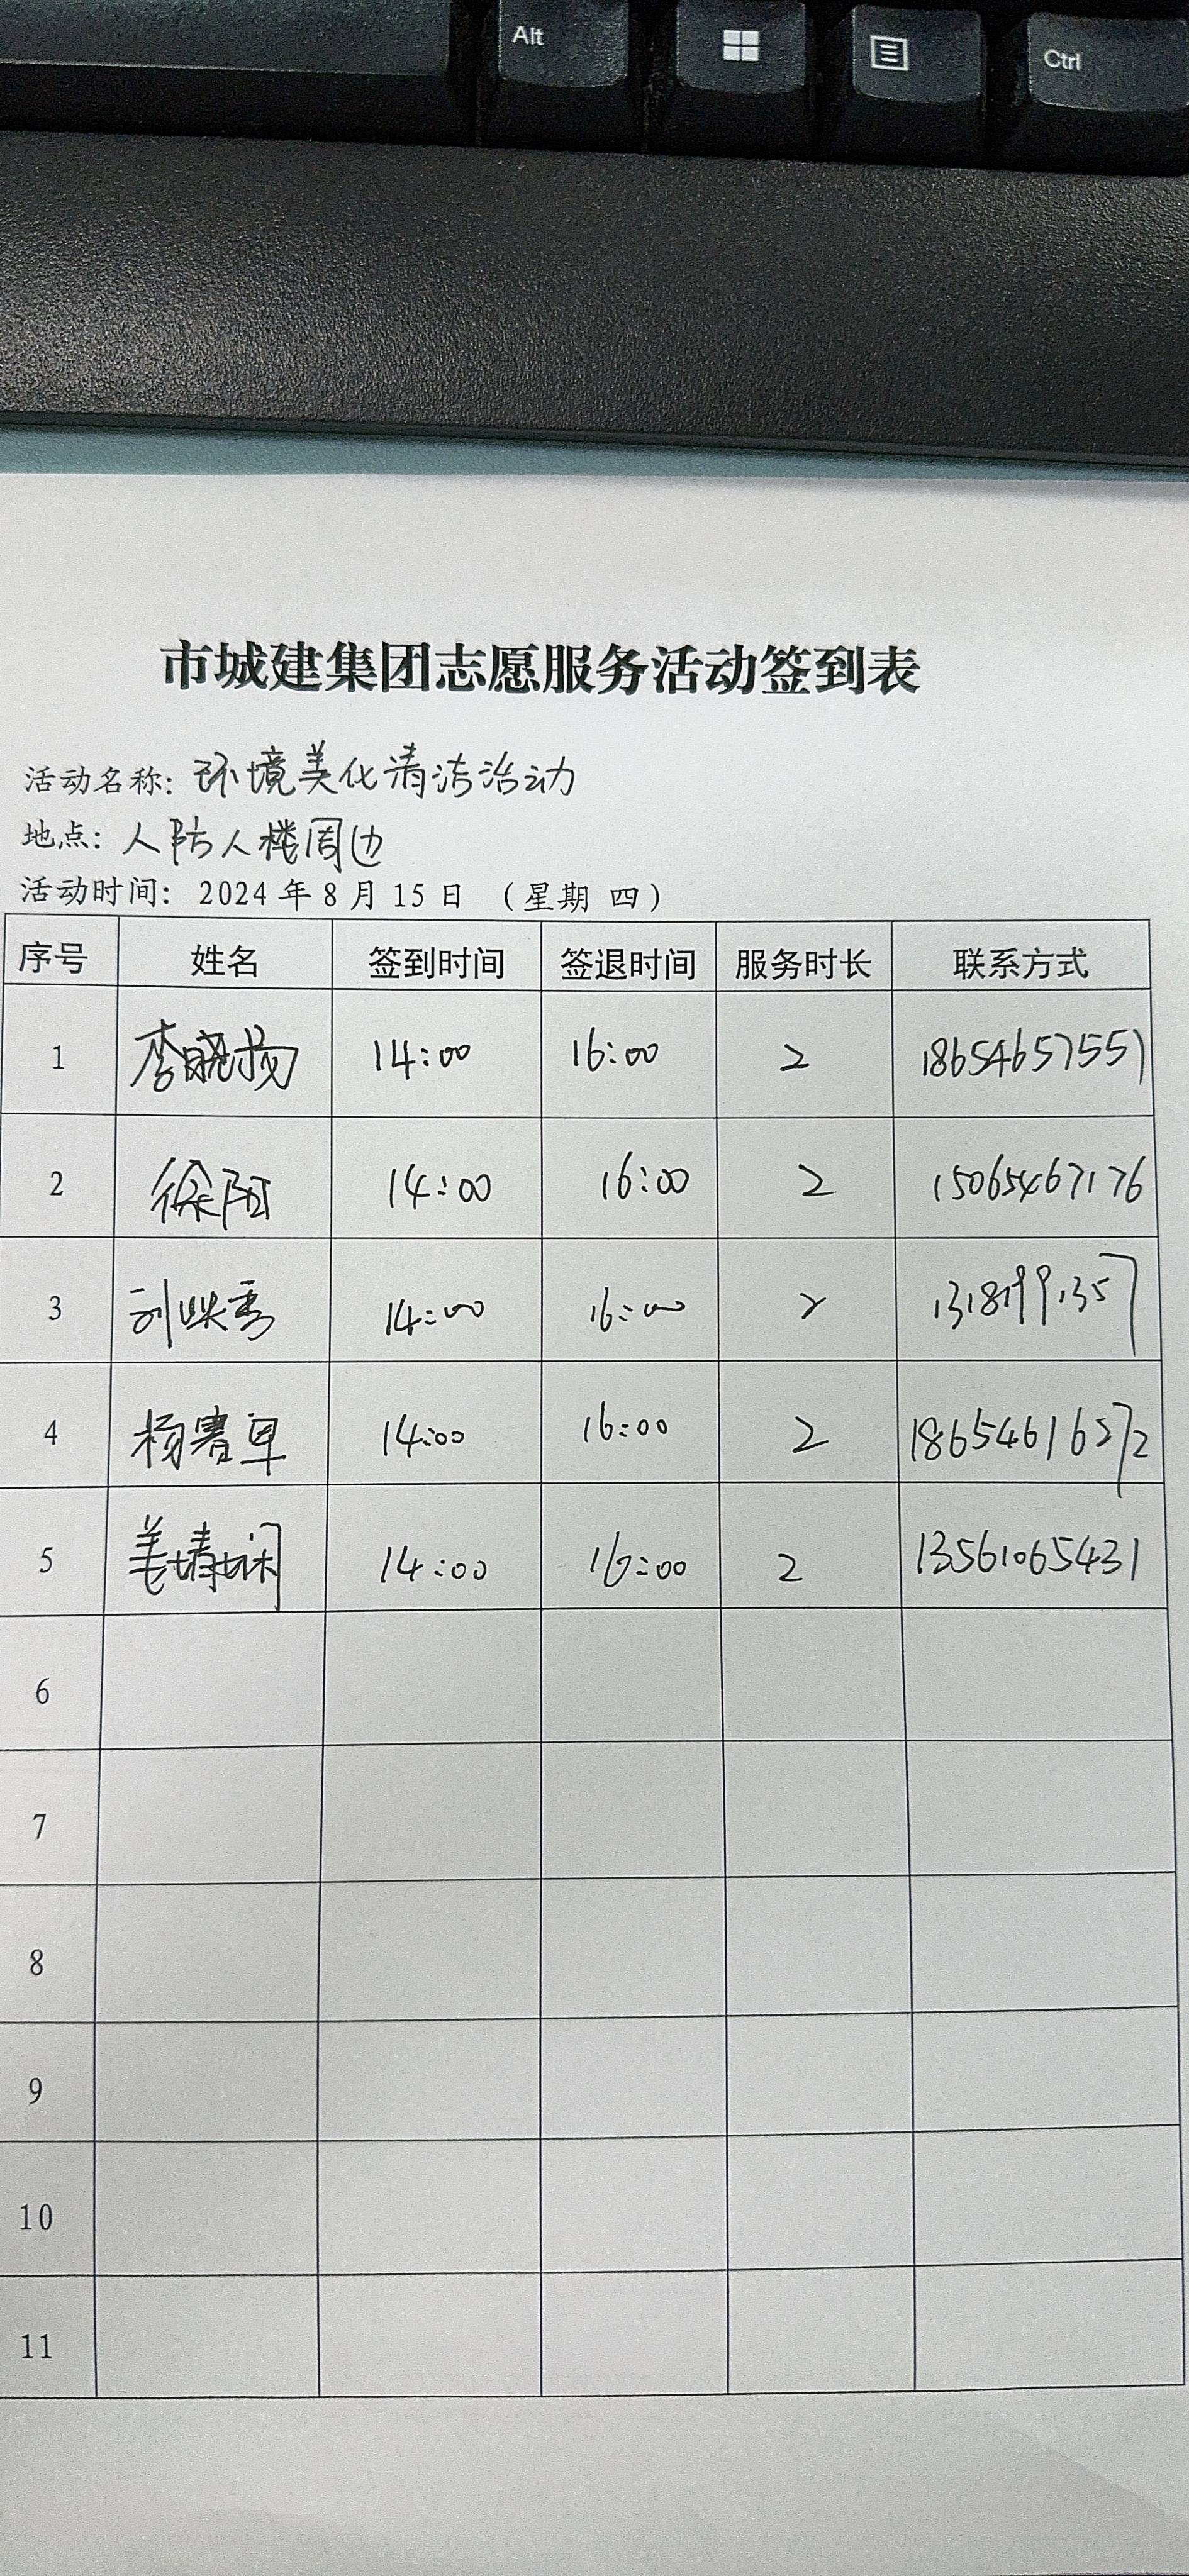 Alt
Ctrl
市城建集团志愿服务活动签到表
活动名称: 环境美化清洁活动
地点: 人防大楼周边
活动时间: 2024 年 8 月 15 日 (星期 四)
序号 姓名 签到时间 签退时间 服务时长 联系方式
1 李晓扬 14:00 16:00 2 18654657557
2 徐阳 14:00 16:00 2 15065467176
3 14:00 16:00 2
4 14:00 16:00 2
5 姜婧娴 14:00 16:00 2 13561065431
6
7
8
9
10
11